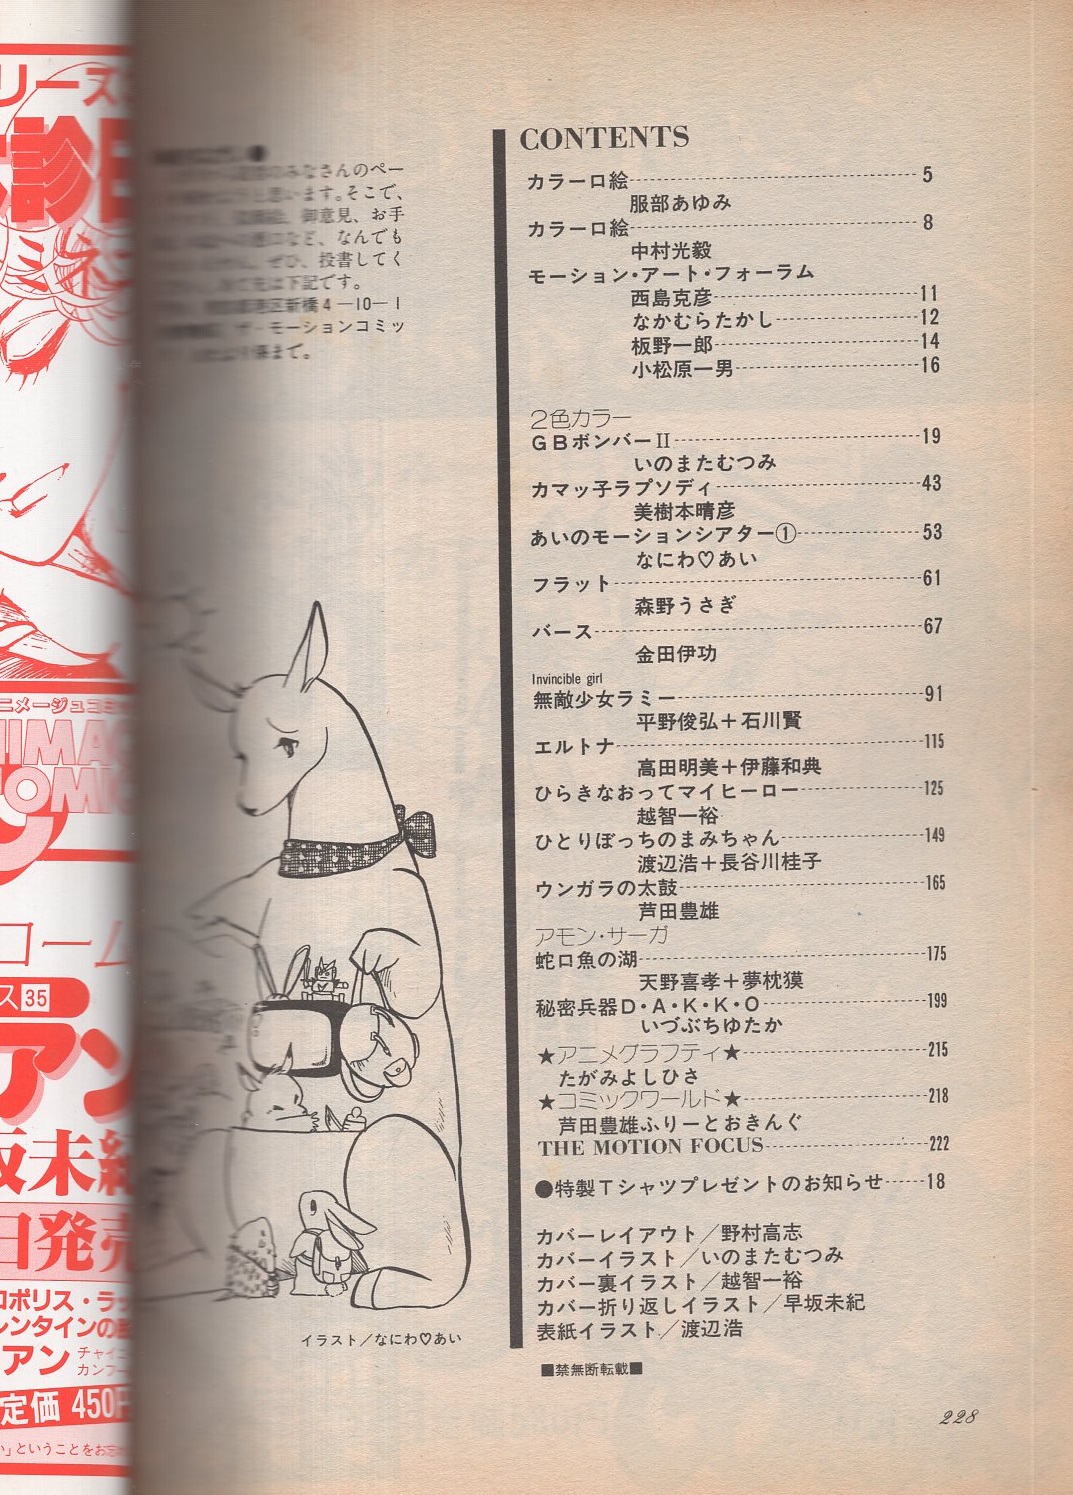 リース
診
ミネ
ニメージュコミ
コーム
ス35
アン
阪未
日発売
ロポリス・ラ
レンタインの
アン
チャイ
カンフー
定価 450円
い」ということをお忘
のみなさんのペー
と思います。そこで、
御意見、お手
など、なんでも
ぜひ、投書してく
先は下記です。
区新橋4—10—1
ザ・モーションコミッ
係まで。
イラスト／なにわ♡あい
CONTENTS
カラー口絵 5
服部あゆみ
カラー口絵 8
中村光毅
モーション・アート・フォーラム
西島克彦 11
なかむらたかし 12
板野一郎 14
小松原一男 16
2色カラー
GBボンバーII 19
いのまたむつみ
カマッ子ラプソディ 43
美樹本晴彦
あいのモーションシアター① 53
なにわ♡あい
フラット 61
森野うさぎ
バース 67
金田伊功
Invincible girl
無敵少女ラミー 91
平野俊弘＋石川賢
エルトナ 115
高田明美＋伊藤和典
ひらきなおってマイヒーロー 125
越智一裕
ひとりぼっちのまみちゃん 149
渡辺浩＋長谷川桂子
ウンガラの太鼓 165
芦田豊雄
アモン・サーガ
蛇口魚の湖 175
天野喜孝＋夢枕獏
秘密兵器D・A・K・K・O 199
いづぶちゆたか
★アニメグラフティ★ 215
たがみよしひさ
★コミックワールド★ 218
芦田豊雄ふりーとおきんぐ
THE MOTION FOCUS 222
●特製Tシャツプレゼントのお知らせ 18
カバーレイアウト／野村高志
カバーイラスト／いのまたむつみ
カバー裏イラスト／越智一裕
カバー折り返しイラスト／早坂未紀
表紙イラスト／渡辺浩
■禁無断転載■
228